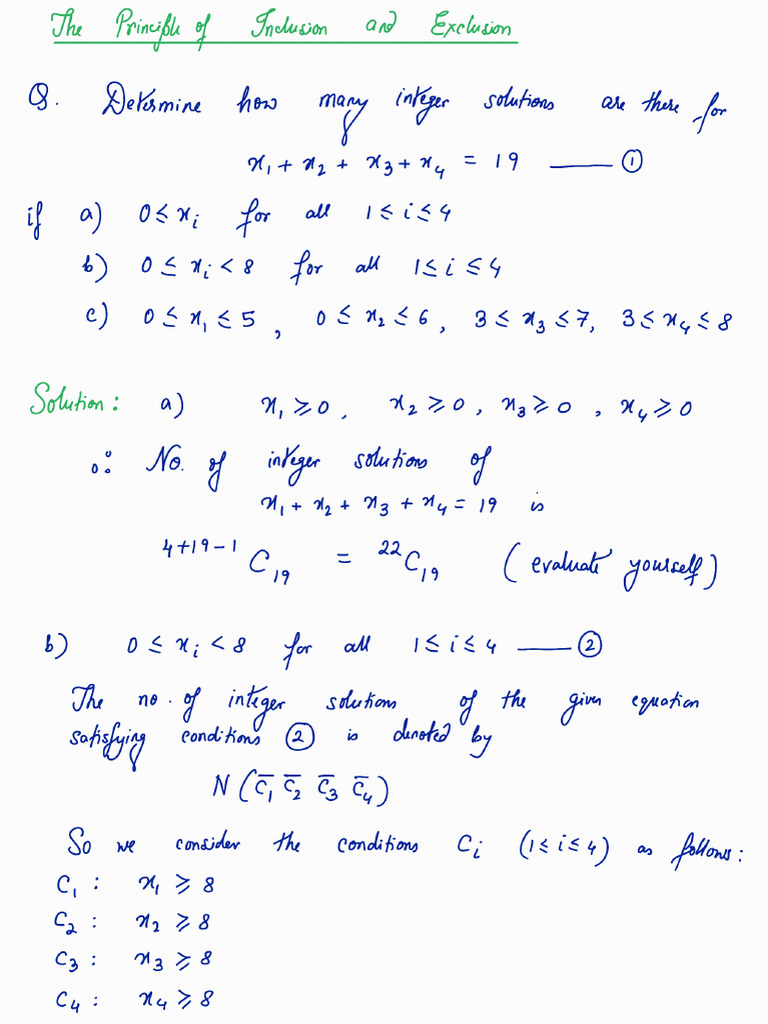 The Principle of Inclusion and Exclusion
Q. Determine how many integer solutions are there for
x₁ + x₂ + x₃ + x₄ = 19 —— ①
if a) 0 ≤ xᵢ for all 1 ≤ i ≤ 4
b) 0 ≤ xᵢ < 8 for all 1 ≤ i ≤ 4
c) 0 ≤ x₁ ≤ 5 , 0 ≤ x₂ ≤ 6, 3 ≤ x₃ ≤ 7, 3 ≤ x₄ ≤ 8
Solution: a) x₁ ⩾ 0 , x₂ ⩾ 0 , x₃ ⩾ 0 , x₄ ⩾ 0
∴ No. of integer solutions of
x₁ + x₂ + x₃ + x₄ = 19 is
⁴⁺¹⁹⁻¹C₁₉ = ²²C₁₉ (evaluate yourself)
b) 0 ≤ xᵢ < 8 for all 1 ≤ i ≤ 4 —— ②
The no. of integer solutions of the given equation
satisfying conditions ② is denoted by
N (C̅₁ C̅₂ C̅₃ C̅₄)
So we consider the conditions Cᵢ (1 ≤ i ≤ 4) as follows:
C₁ : x₁ ⩾ 8
C₂ : x₂ ⩾ 8
C₃ : x₃ ⩾ 8
C₄ : x₄ ⩾ 8